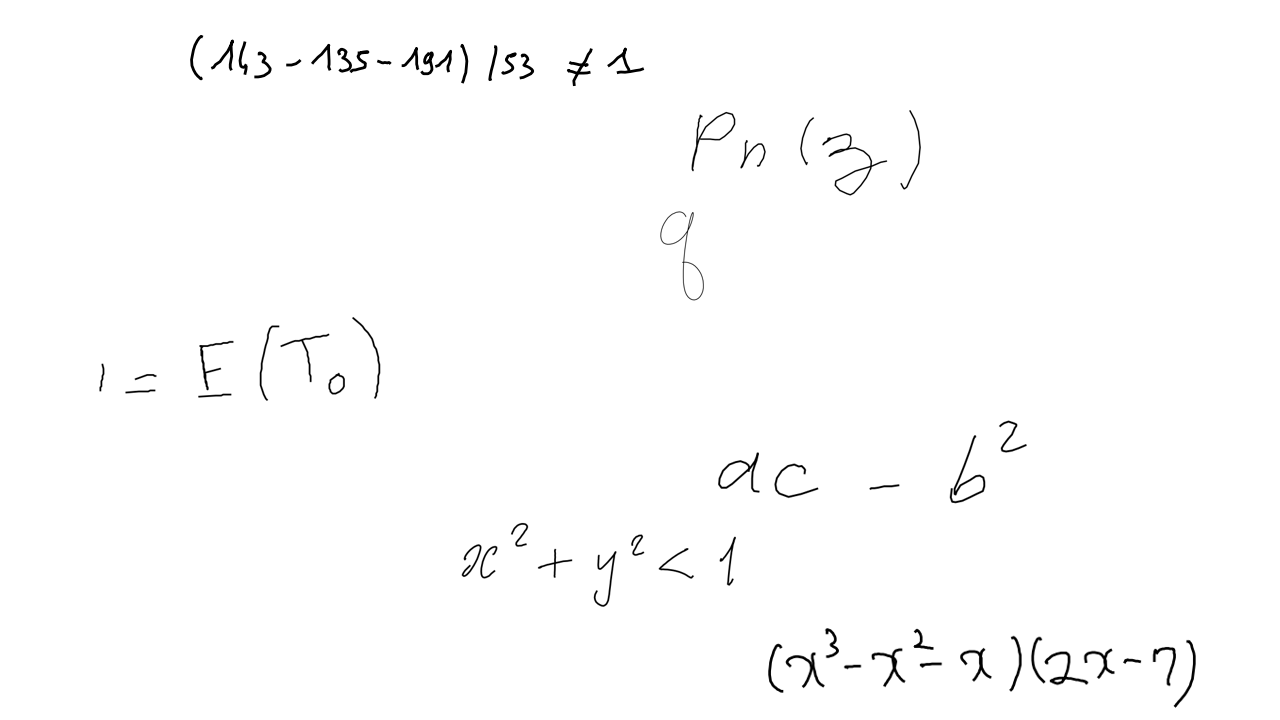 (143 - 135 - 191) / 53 ≠ 1
Pn (z)
q
1 = E (T₀)
ac - b²
x² + y² < 1
(x³ - x² - x)(2x - 7)